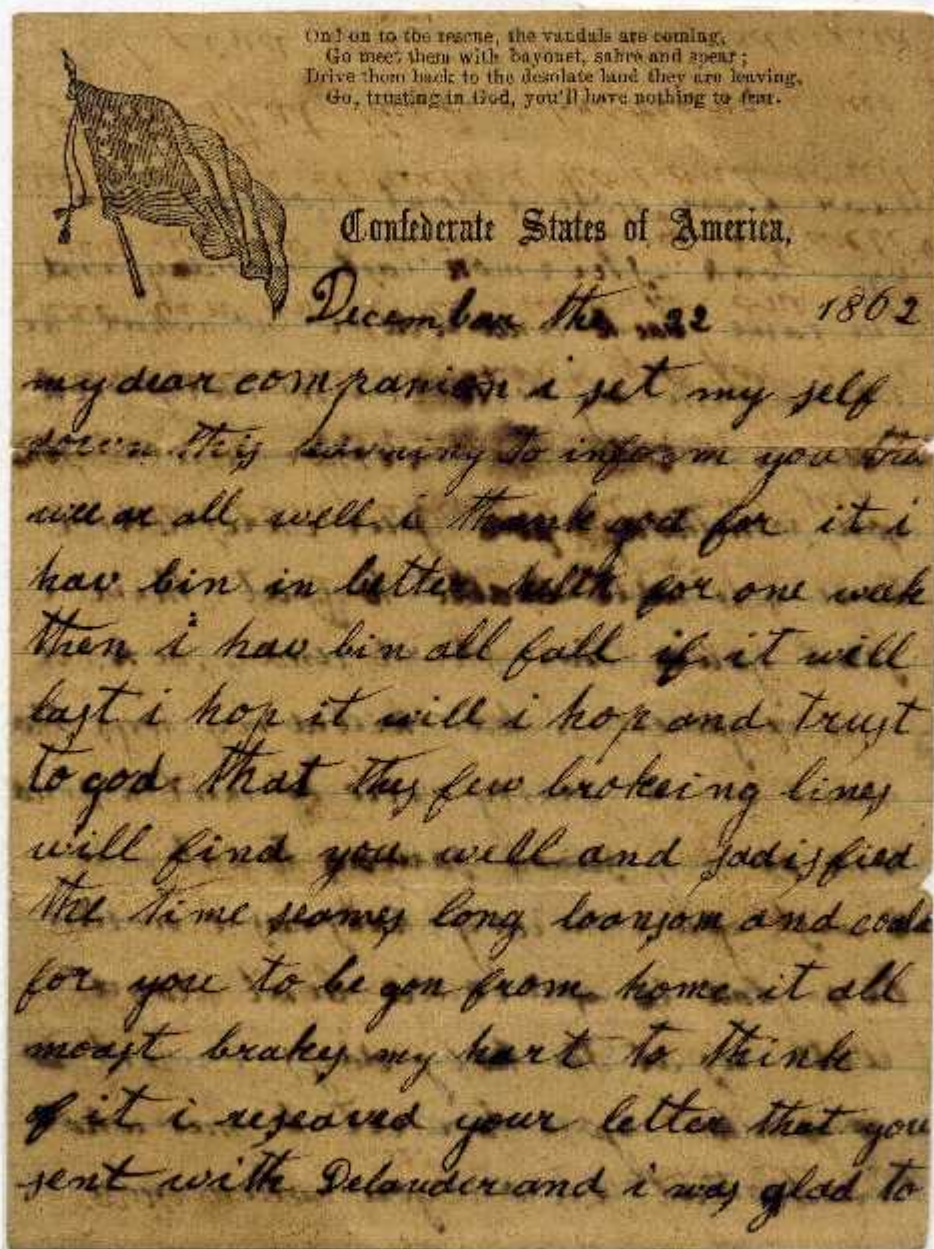 On! on to the rescue, the vandals are coming,
Go meet them with bayonet, sabre and spear;
Drive them back to the desolate land they are leaving,
Go, trusting in God, you'll have nothing to fear.
Confederate States of America,
December the 22 1862
my dear companion i set my self
down this to inform you
all well i thank god for it i
hav bin in better helth for one weak
then i hav bin all fall if it will
last i hop it will i hop and trust
to god that thes few brokeing lines
will find you well and sadisfied
the time seames long loansom and
for you to be gon from home it all
moast brakes my hart to think
of it i reseaved your letter that you
sent with Delauder and i was glad to